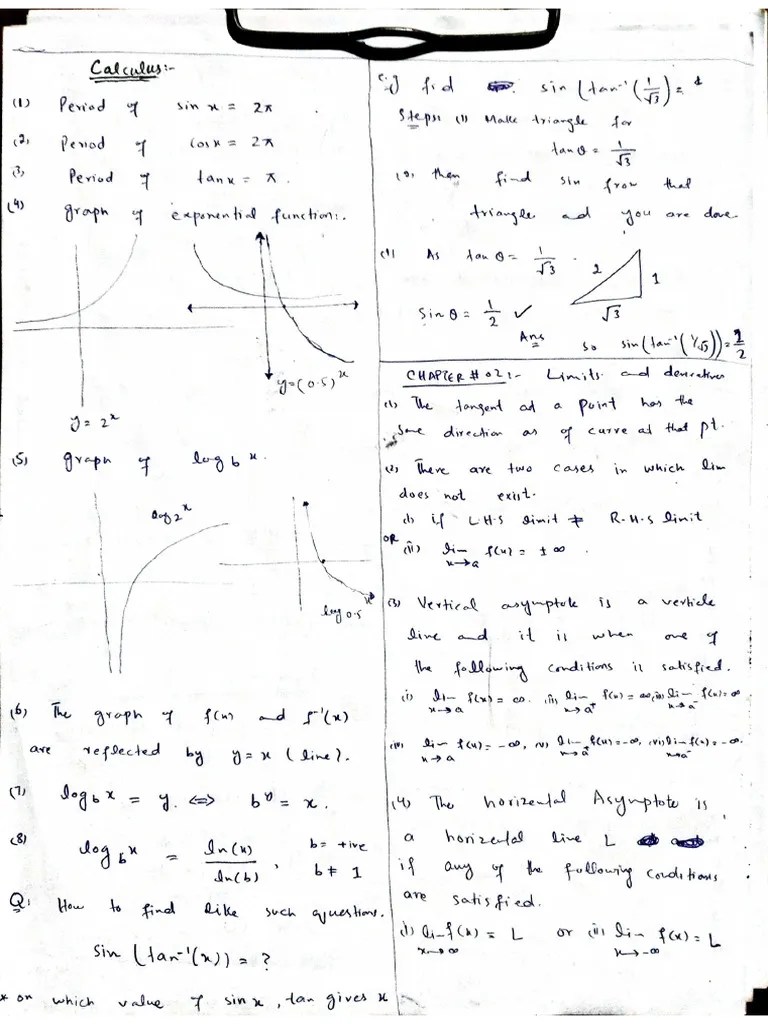 Calculus:-
(1) Period of sin x = 2π
(2) Period of cos x = 2π
(3) Period of tan x = π.
(4) graph of exponential function:.
y=(0.5)^x
y = 2^x
(5) graph of log_b x.
log_2 x
log_0.5 x
(6) The graph of f(x) and f⁻¹(x)
are reflected by y=x (line).
(7) log_b x = y. ⟺ b^y = x.
(8) log_b x = ln(x)/ln(b), b= +ive
b≠ 1
Q: How to find like such questions.
sin (tan⁻¹(x)) = ?
* on which value of sin x, tan gives x
find sin (tan⁻¹(1/√3)) =
Steps: (1) Make triangle for
tan θ = 1/√3
then find sin from that
triangle and you are done.
(1) As tan θ = 1/√3 .
2
1
√3
Sin θ = 1/2 ✓
Ans
so sin(tan⁻¹(1/√3)) = 1/2
CHAPTER # 02:- Limits and derivatives
(1) The tangent at a point has the
same direction as of curve at that pt.
(2) There are two cases in which lim
does not exist.
(i) if L.H.S limit ≠ R.H.S limit
OR (ii) lim x→a f(x) = ± ∞ .
(3) Vertical asymptote is a verticle
line and it is when one of
the following conditions is satisfied.
(i) lim x→a f(x) = ∞. (ii) lim x→a⁺ f(x) = ∞, (iii) lim x→a⁻ f(x) = ∞
(iv) lim x→a f(x) = -∞, (v) lim x→a⁺ f(x) = -∞, (vi) lim x→a⁻ f(x) = -∞.
(4) The horizental Asymptote is
a horizental line L
if any of the following conditions
are satisfied.
(i) lim x→∞ f(x) = L or (ii) lim x→-∞ f(x) = L